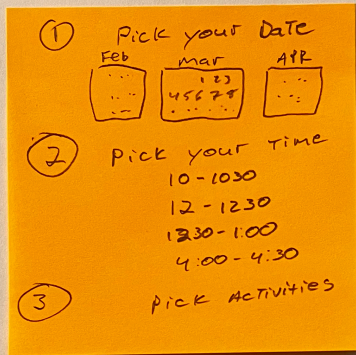 1 Pick your Date
Feb Mar APR
1 2 3
4 5 6 7 8
2 Pick your Time
10-1030
12-1230
1230-1:00
4:00-4:30
3 Pick Activities